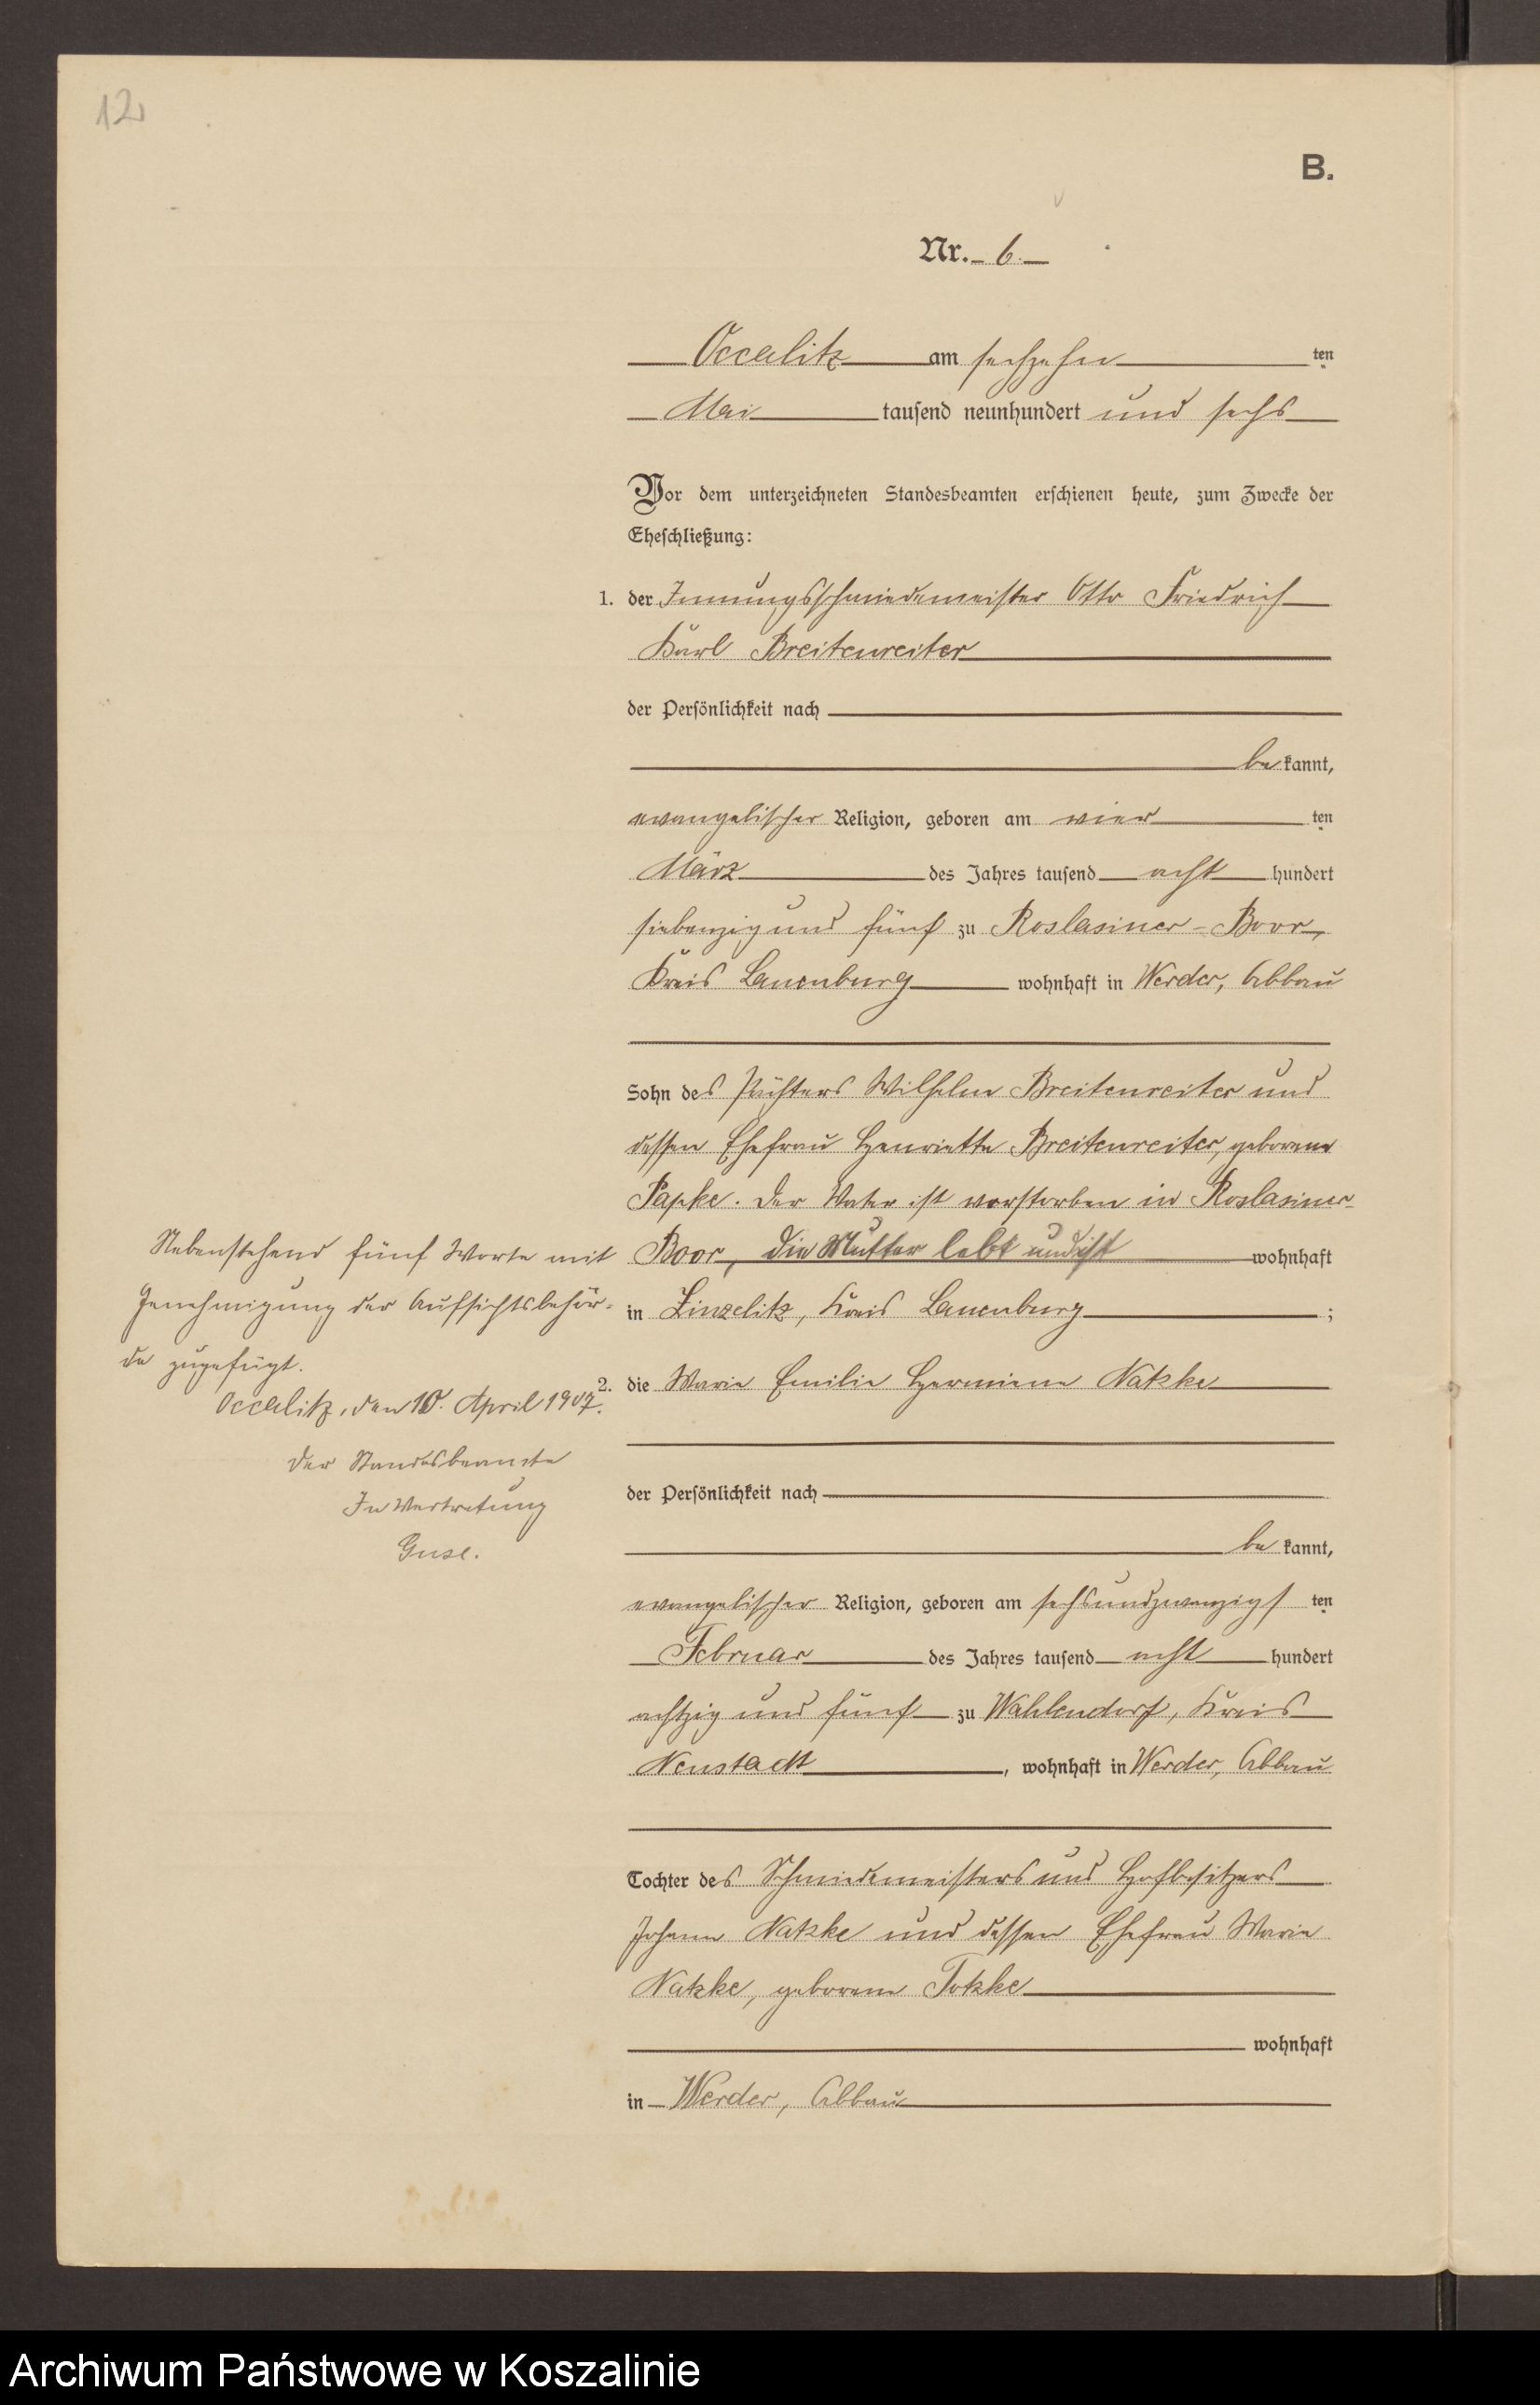 12
B.
Nr. 6.
Occalitz am sechzehn ten
Mai tausend neunhundert und sechs
Vor dem unterzeichneten Standesbeamten erschienen heute, zum Zwecke der
Eheschließung:
1. der Innungsschmiedemeister Otto Friedrich
Karl Breitenreiter
der Persönlichkeit nach
be kannt,
evangelischer Religion, geboren am vier ten
März des Jahres tausend acht hundert
siebenzig und fünf zu Roslasiner-Boor,
Kreis Lauenburg wohnhaft in Werder, Abbau
Sohn des Pächters Wilhelm Breitenreiter und
dessen Ehefrau Henriette Breitenreiter, geborene
Papke. Der Vater ist verstorben in Roslasiner-
Boor, die Mutter lebt und ist wohnhaft
in Zinzelitz, Kreis Lauenburg ;
Nebenstehend fünf Worte mit
Genehmigung der Aufsichtsbehör-
de zugefügt.
Occalitz, den 10. April 1907.
Der Standesbeamte
In Vertretung
Guse.
2. die Marie Emilie Hermine Natzke
der Persönlichkeit nach
be kannt,
evangelischer Religion, geboren am sechsundzwanzigs ten
Februar des Jahres tausend acht hundert
achtzig und fünf zu Wahlendorf, Kreis
Neustadt , wohnhaft in Werder, Abbau
Tochter des Schmiedemeisters und Hofbesitzers
Johann Natzke und dessen Ehefrau Marie
Natzke, geborene Totzke
wohnhaft
in Werder, Abbau
Archiwum Państwowe w Koszalinie